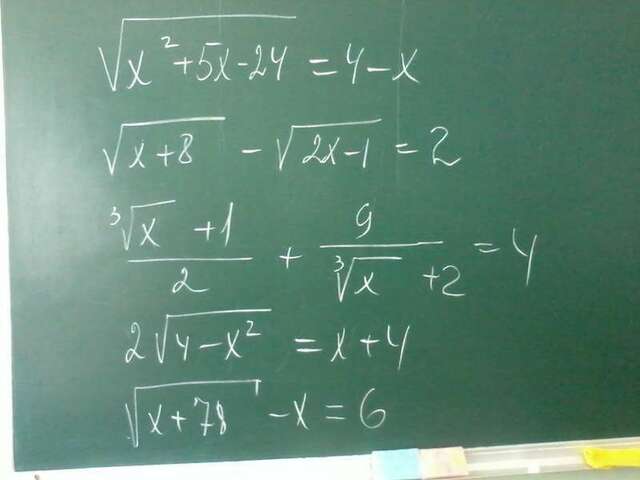 √(x²+5x-24) = 4-x
√(x+8) - √(2x-1) = 2
(∛x +1)/2 + 9/(∛x +2) = 4
2√(4-x²) = x+4
√(x+78) - x = 6